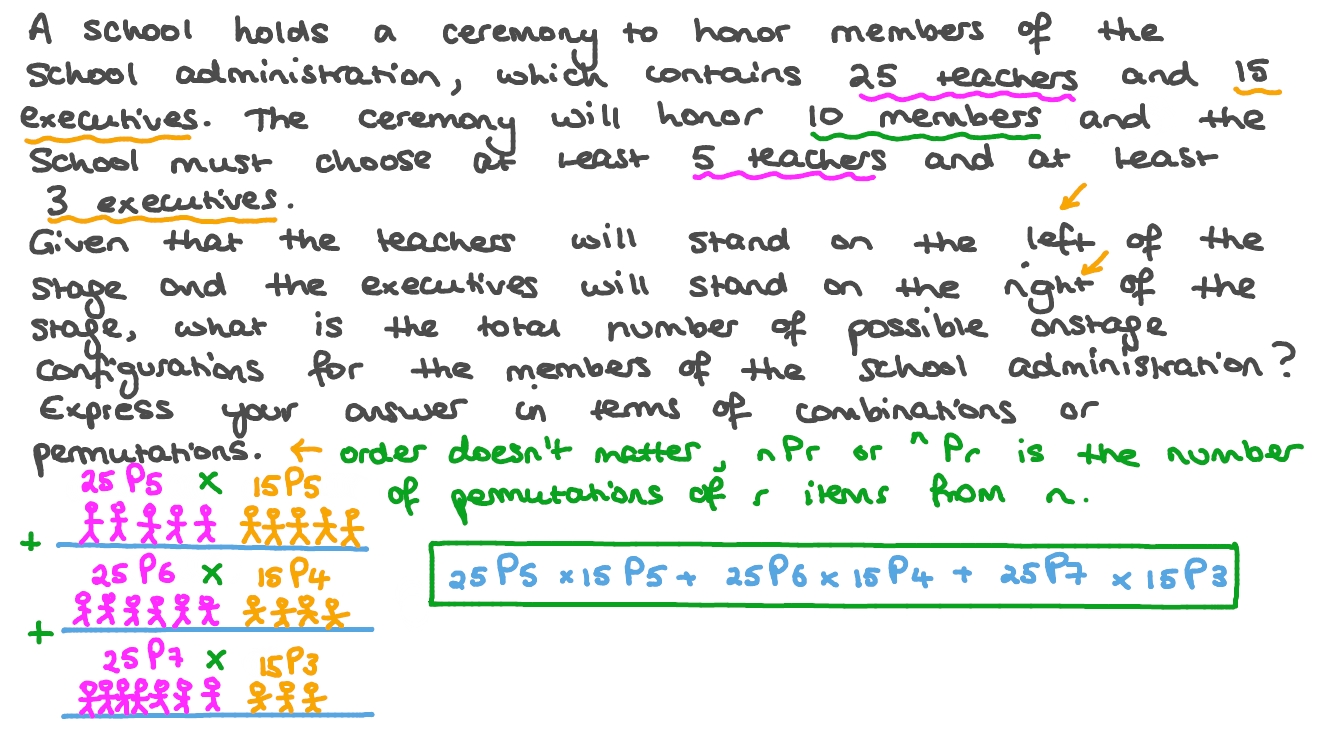 A school holds a ceremony to honor members of the
School administration, which contains 25 teachers and 15
executives. The ceremony will honor 10 members and the
School must choose at least 5 teachers and at least
3 executives.
Given that the teachers will stand on the left of the
stage and the executives will stand on the right of the
stage, what is the total number of possible onstage
configurations for the members of the school administration?
Express your answer in terms of combinations or
permutations. ← order doesn't matter, nPr or ⁿPr is the number
of permutations of r items from n.
25P5 × 15P5
+
25P6 × 15P4
+
25P7 × 15P3
25P5 × 15P5 + 25P6 × 15P4 + 25P7 × 15P3